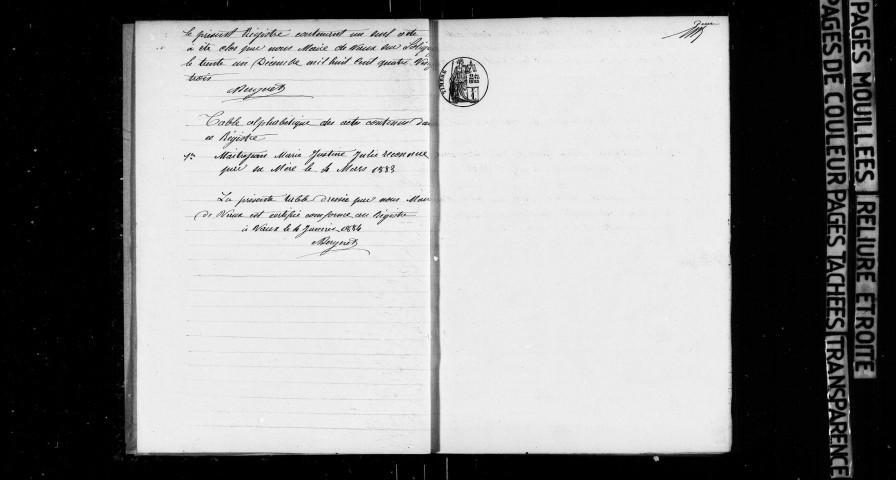 le présent Régistre contenant un seul acte
a été clos par nous Maire de Vaux sur
le trente un Décembre mil huit cent quatre vingt
trois
Table alphabétique des actes contenus dans
ce Régistre
1er Marie Justine Julie reconnue
par sa Mère le 4 Mars 1883
La présente table dressée par nous Maire
de Vaux est certifiée conforme au Régistre
à Vaux le 4 Janvier 1884
TIMBRE
PAGES MOUILLEES RELIURE ETROITE
PAGES DE COULEUR PAGES TACHEES TRANSPARENCE